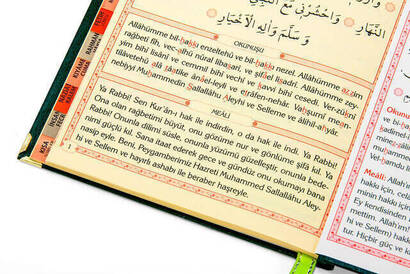 النَّهَارِ وَاحْشُرْنِي مَعَ النَّبِيِّ
وَسَلَّمَ وَآلِهِ الْأَخْيَارِ
OKUNUŞU
Allâhümme bil-hakkı enzeltehû ve bil-hakkı nezel. Allâhümme azzım
rağbetî fîh, vec-alhü nûral libasarî, ve şifâel lisadrî. Allâhümme zey-
yin bihî lisânî ve cemmil bihî vechî ve kavvi bihî cesedî. Ver-zükni
tilâvetehû alâ tâatike ânâel-leyli ve etrâfen-nehâr. Vahşurnî mean-
nebiyyi Muhammedin Sallallâhu Aleyhi ve Selleme ve âlihil-ahyâr.
MEÂLİ
Ya Rabbi! Sen Kur'ân-ı hak ile indirdin, o da hak ile indi. Ya Rabbi!
Ona olan rağbetimi büyüt, onu gözüme nur ve gönlüme şifa kıl. Ya
Rabbi! Onunla dilimi süsle, onunla yüzümü güzelleştir, onunla bede-
nimi güçlü kıl. Sana itaat ederek gece ve gündüz onu okumayı bana
nasip eyle. Beni, Peygamberimiz Hazreti Muhammed Sallallâhu Aley-
hi ve Sellem ve hayırlı ashabı ile beraber haşreyle.
RAHMAN
KIYAME
CUMA
FECR
NİSA
Okunu
Meâli:
hakkı için,
hakkı için
Ey kendisinden
mettim. Allah'ım
tur. Hiçbir güç ve k